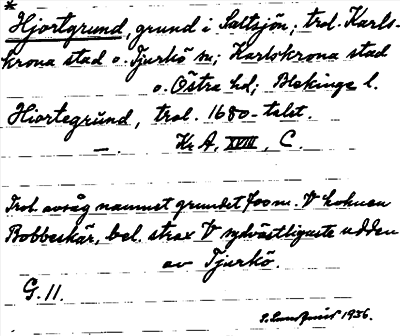 *
Hjortgrund, grund i Saltsjön, trol. Karls-
krona stad o. Tjurkö sn; Karlskrona stad
o. Östra hd; Blekinge l.
Hiortegrŭnd, trol. 1680-talet.
—. Kr A, XVIII, C.
Trol. avsåg namnet grundet 700 m. V holmen
Bobbeskär, bel. strax V sydvästligaste udden
av Tjurkö.
G. 11.
1956.